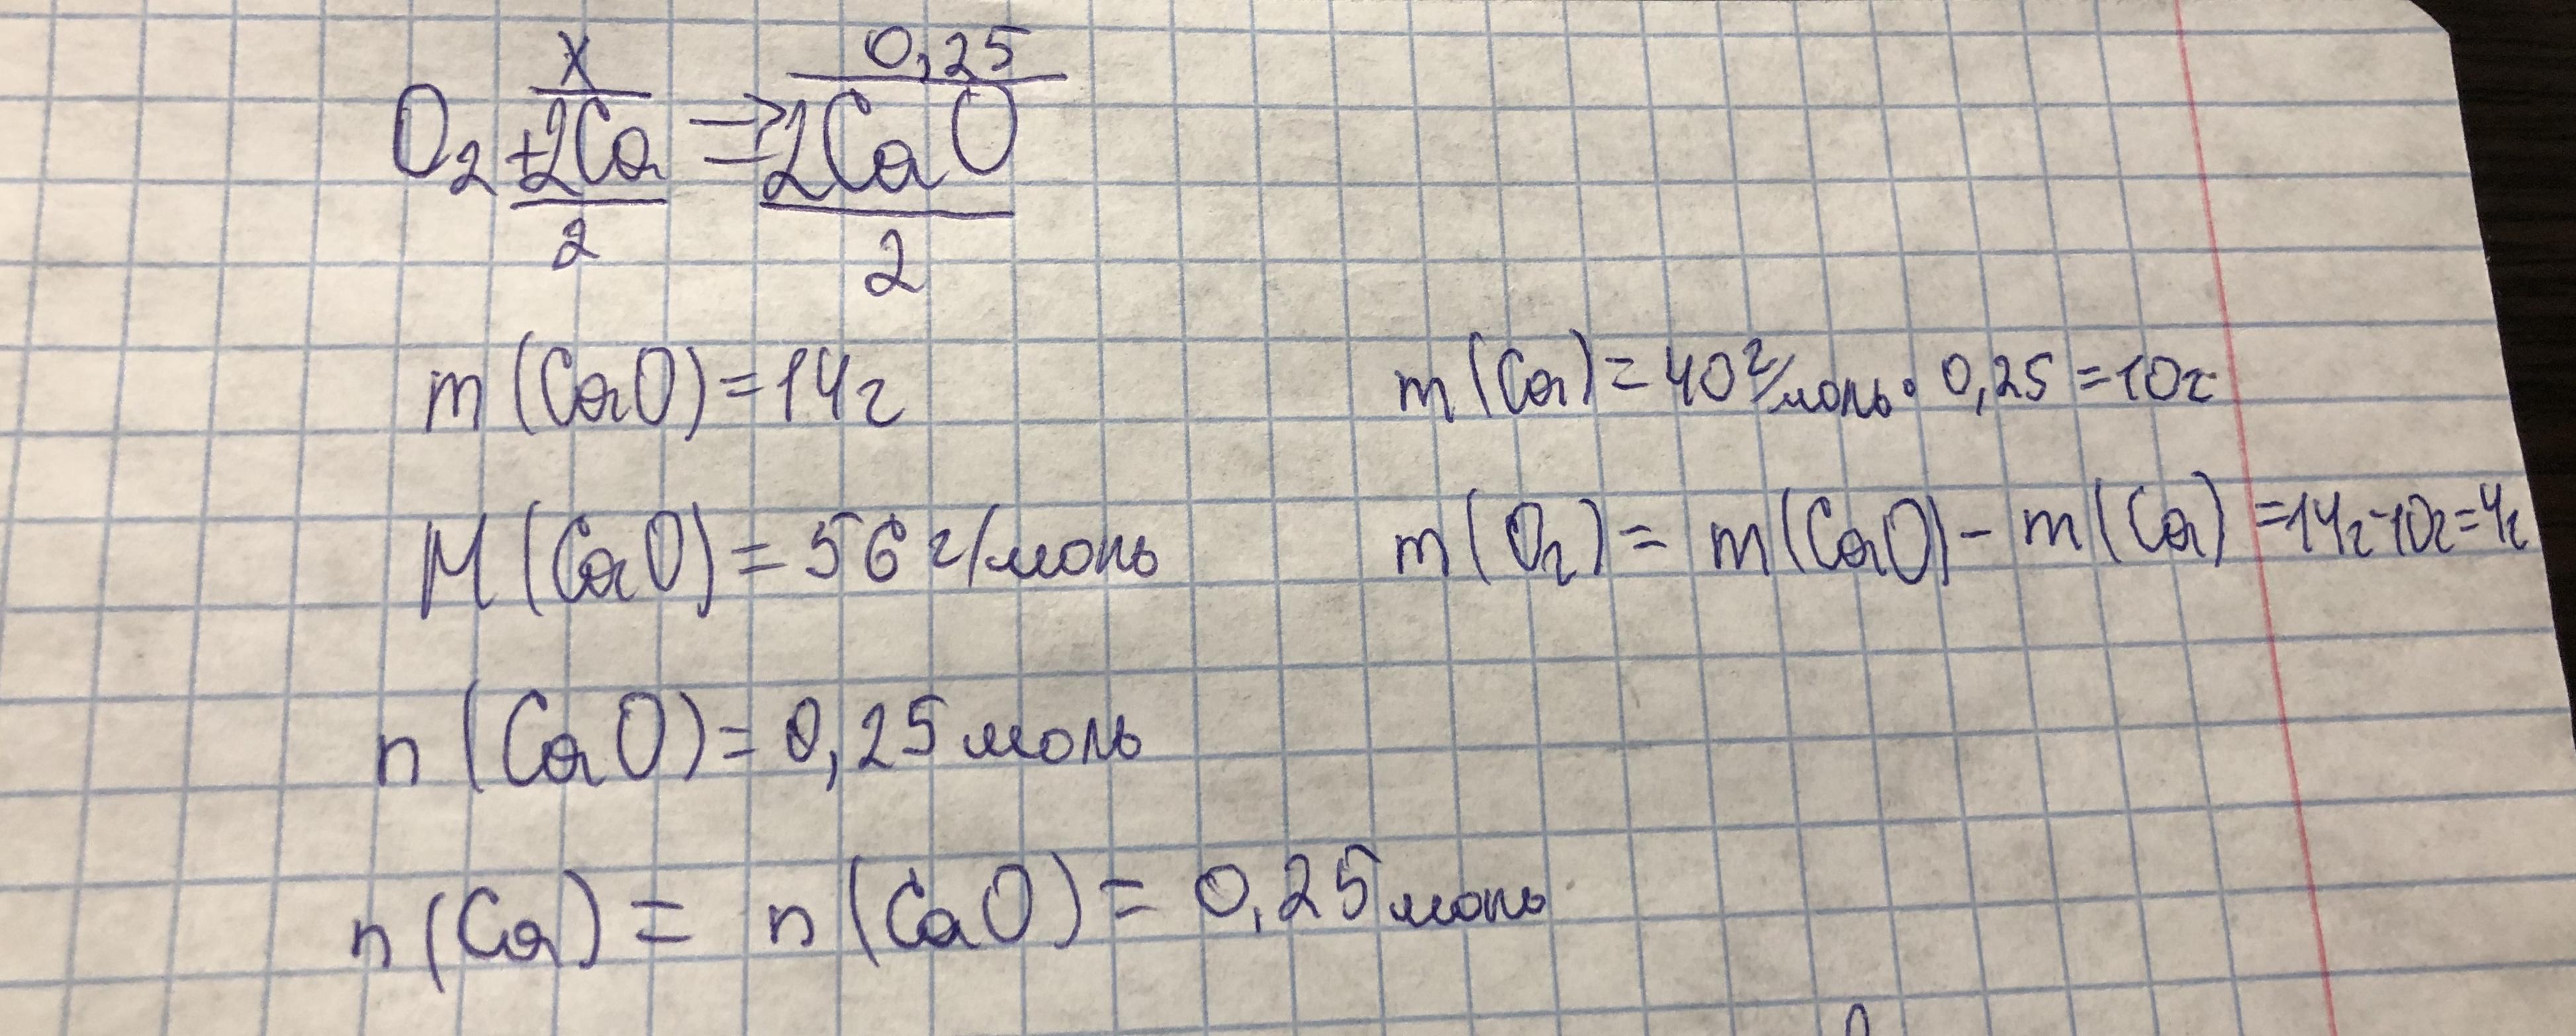 x 0,25
O₂ + 2Ca => 2CaO
2 2
m (CaO) = 14г
M (CaO) = 56 г/моль
n (CaO) = 0,25 моль
n (Ca) = n (CaO) = 0,25 моль
m (Ca) = 40 г/моль · 0,25 = 10г
m (O₂) = m (CaO) - m (Ca) = 14г - 10г = 4г